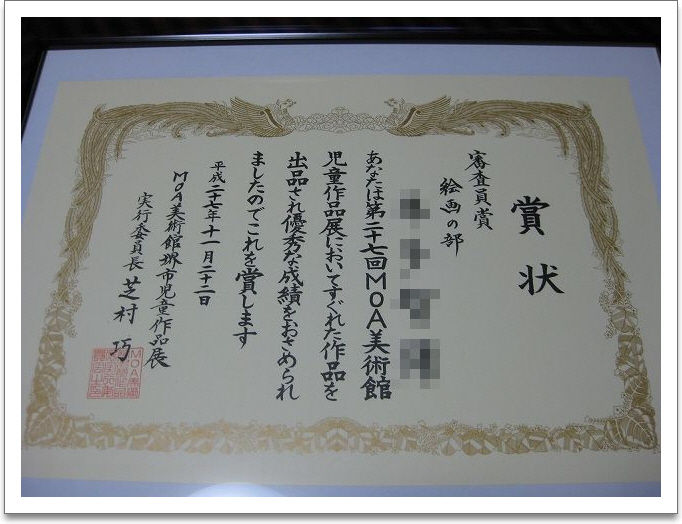 賞状
審査員賞
絵画の部
あなたは第二十七回MOA美術館
児童作品展においてすぐれた作品を
出品され優秀な成績をおさめられ
ましたのでこれを賞します
平成二十七年十一月二十二日
MOA美術館堺市児童作品展
実行委員長 芝村巧